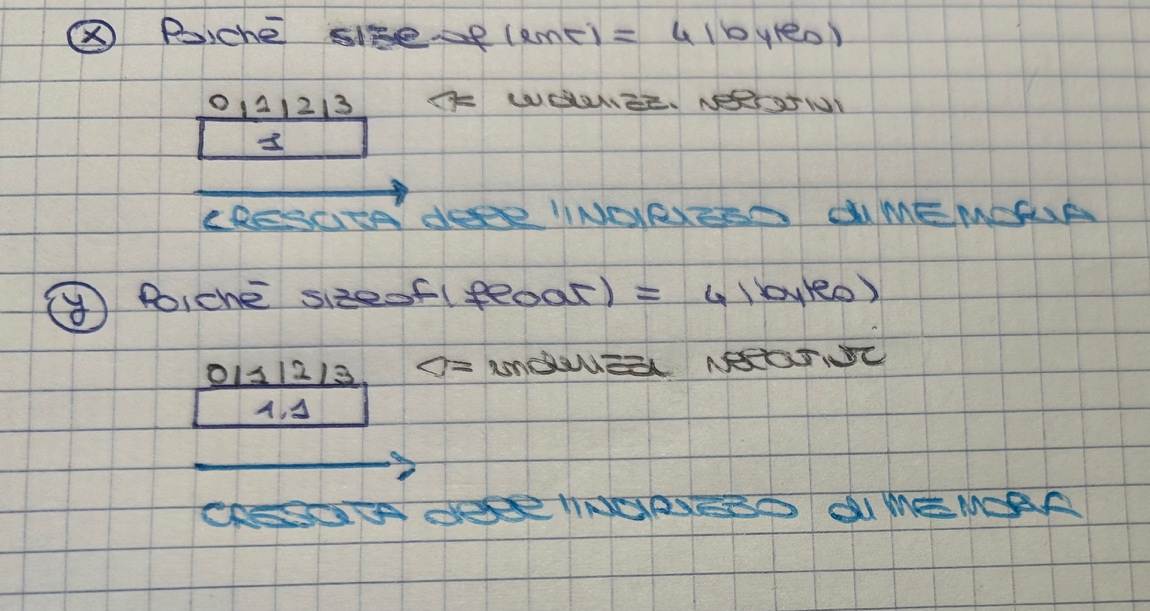 x Poiché sizeof(int) = 4 (bytes)
0 1 2 3 <=
1
CRESCITA dell'INDIRIZZO di MEMORIA
y Poiché sizeof(float) = 4 (bytes)
0 1 2 3 <= indirizzi
1.1
CRESCITA dell'INDIRIZZO di MEMORIA